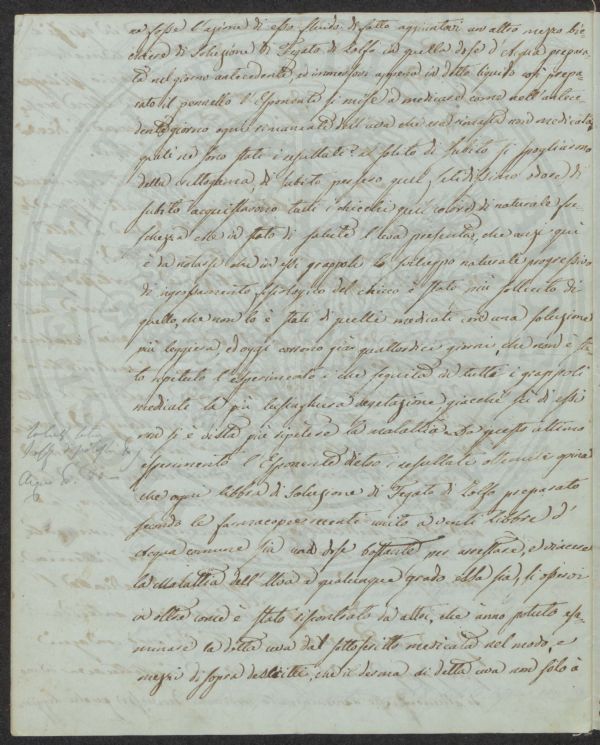 se fosse l'azione di esto fluido di fatto aggiuntovi un altro mezzo bic
chiere di Soluzione di Fegato di Zolfo in quella dose d'Acqua prepara-
ta nel giorno antecedente, ed immersovi appena in detto liquido così prepa-
rato il pennello l'Esponente si mise a medicare come nell'antece
dente giorno ogni rimanente dell'uva che era rimasta non medicata,
quali ne sono stati i resultati? al solito di subito si spogliarono
della crittogama, di subito perso quel fetidissimo odore di
subito acquistarono tutti i chicchi quel colore di naturale fre
schezza che in stato di salute l'uva presenta, che anzi qui
è da notarsi che in essi grappoli lo sviluppo naturale progressivo
di ingrossamento fisiologico del chicco è stato più sollecito di
quello, che non lo è stati di quelli medicati con una soluzione
più leggiera, ed oggi corrono già quattordici giorni, che non è sta
to ripetuto l'esperimento e che seguita in tutti i grappoli
medicati la più lusinghiera vegetazione giacchè in essi
non si è vista più ripetere la malattia. Da questo ultimo
esperimento l'Esponente dietro i resultati ottenuti opina
che ogni libbra di Soluzione di Fegato di Zolfo preparato
secondo le farmacopee unito a venti Libbre d'
Acqua comune sia una dose bastante per arrestare, e vincere
la malattia dell'Uva a qualunque grado essa sia, si osservi
in oltre come è stato riscontrato da altri, che ànno potuto esa-
minare la detta uva dal sottoscritto medicata nel modo, e
mezzi di sopra descritti, che il derma di detta uva non solo à